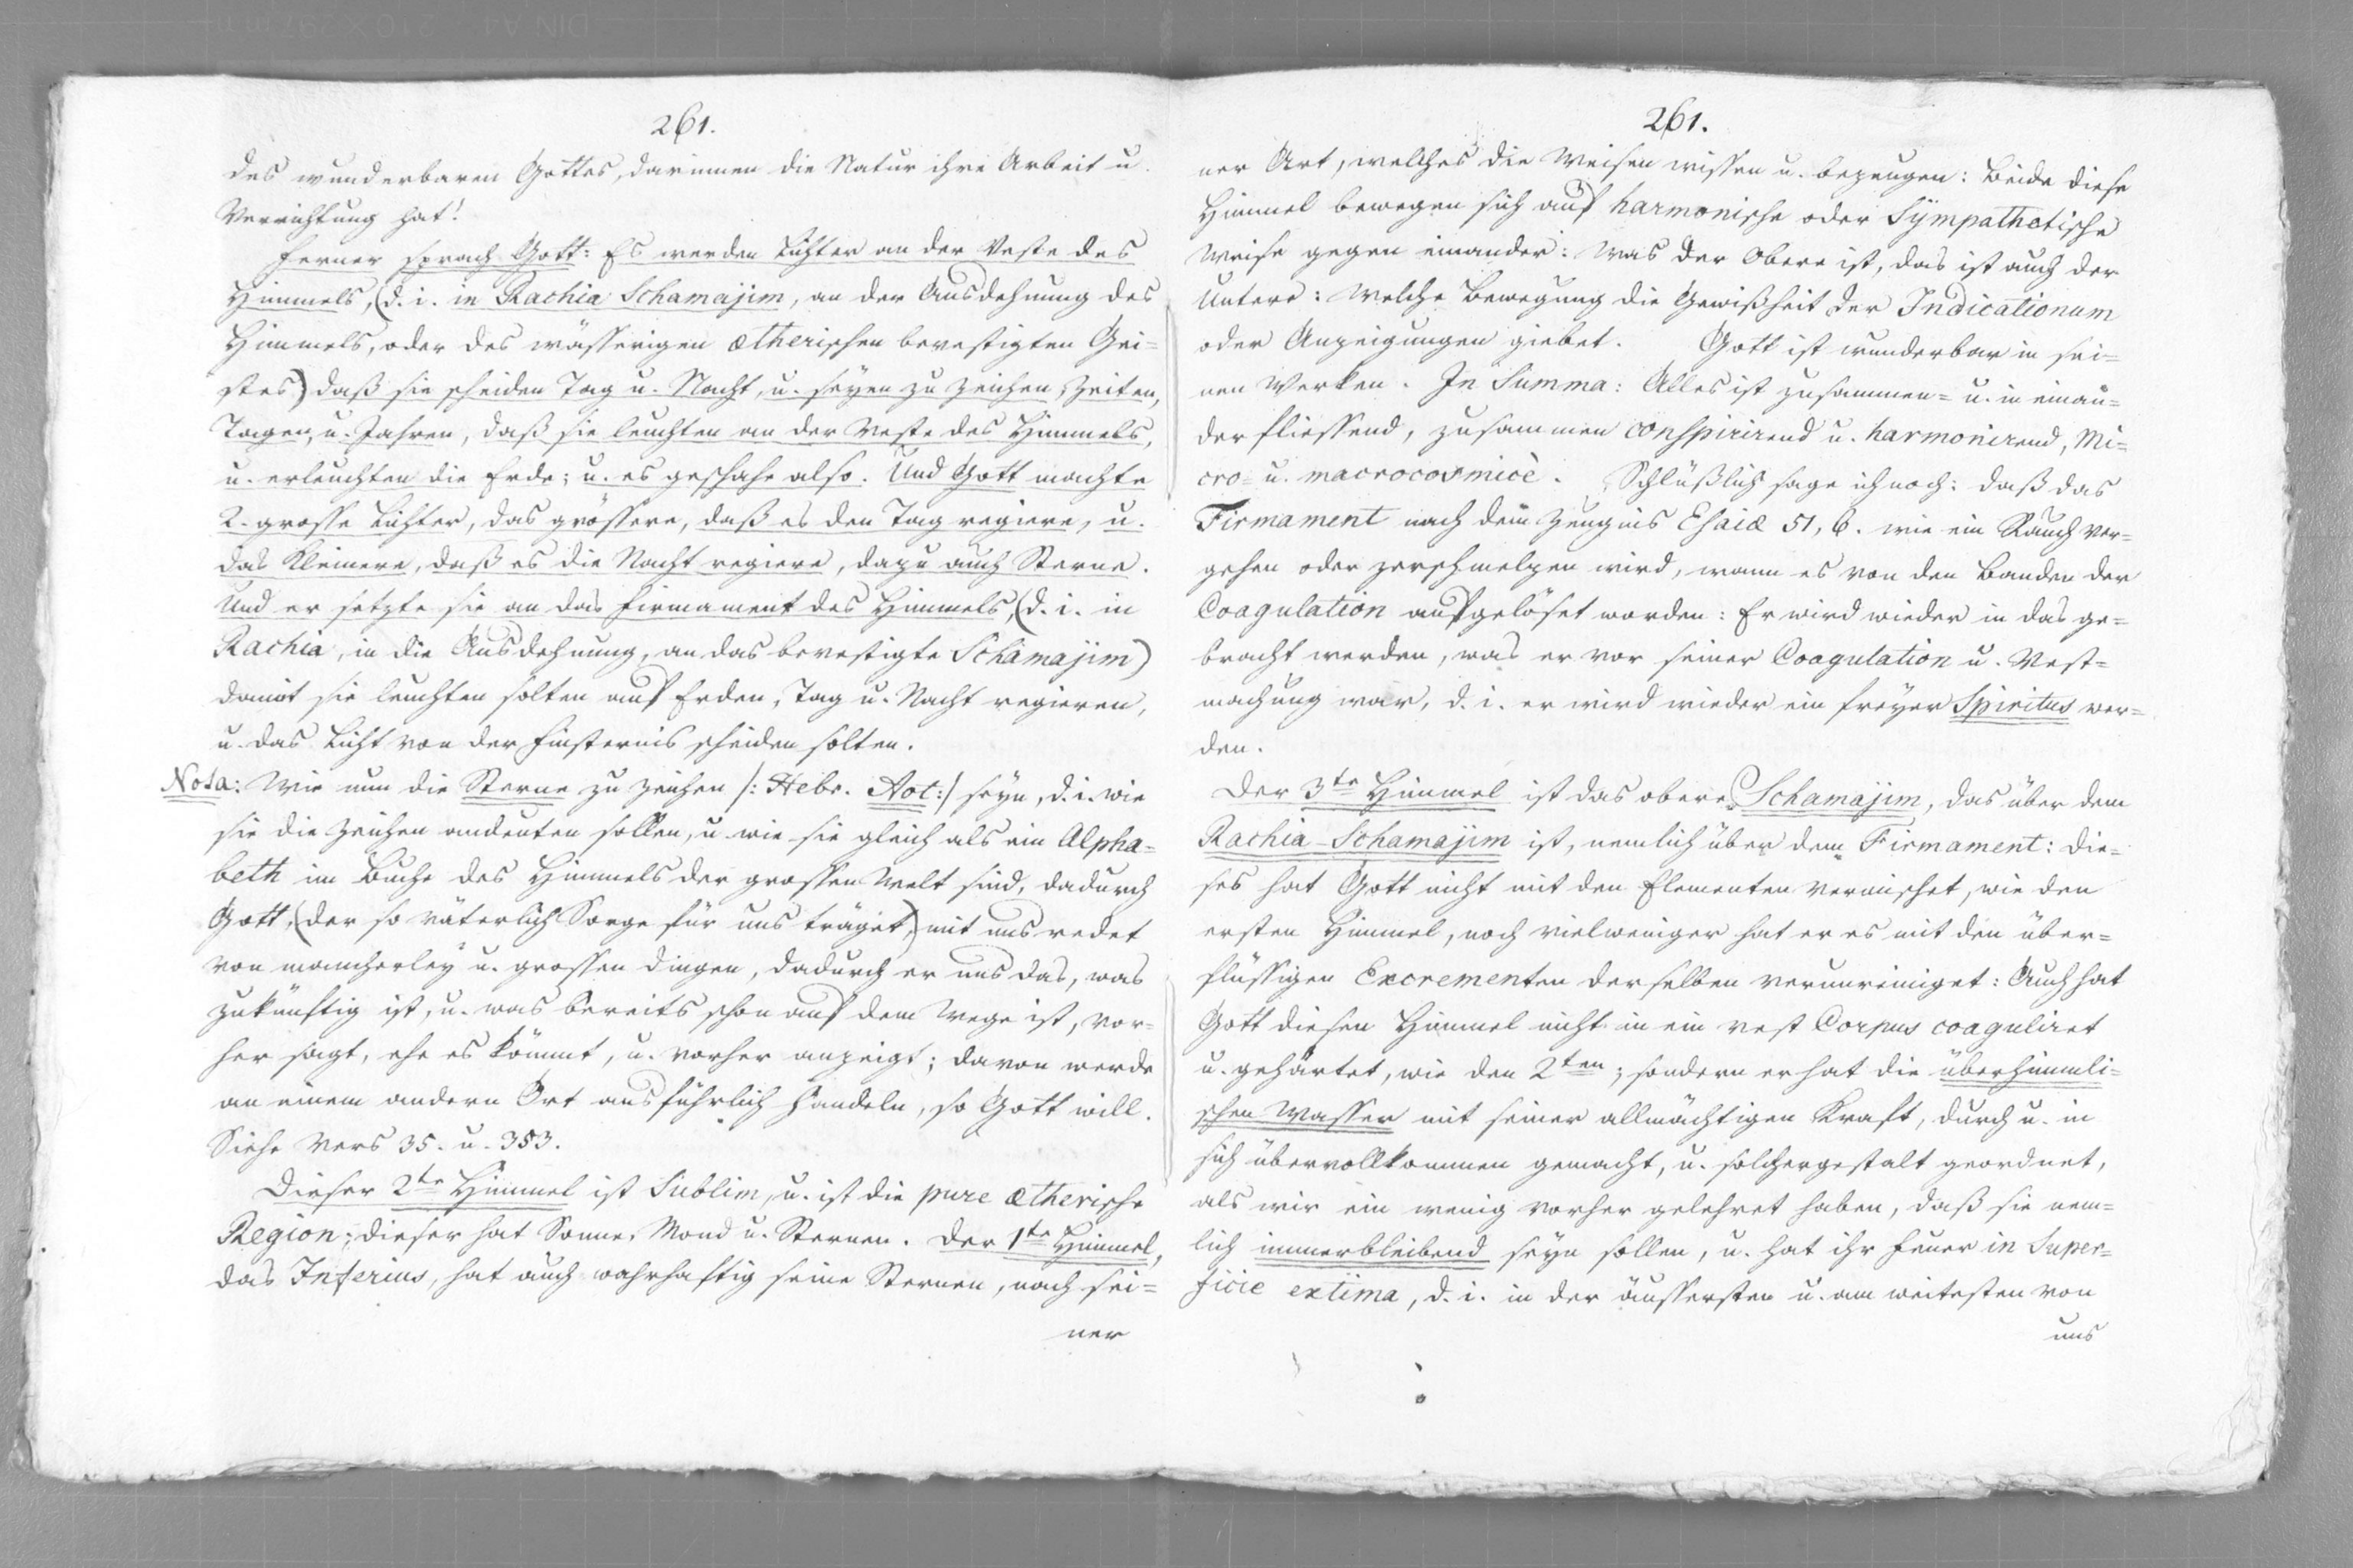 261.
des wunderbaren Gottes, darinnen die Natur ihre Arbeit u.
Verrichtung hat!
Ferner sprach Gott: Es werden Lichter an der Veste des
Himmels, (d. i. in Rachia Schamajim, an der Ausdehnung des
Himmels, oder des wässerigen ætherischen bevestigten Gei=
stes) daß sie scheiden Tag u. Nacht, u. seyen zu Zeichen, Zeiten,
Tagen, u. Jahren, daß sie leuchten an der Veste des Himmels,
u. erleuchten die Erde; u. es geschahe also. Und Gott machte
2. grosse Lichter, das grössere, daß es den Tag regiere, u.
das Kleinere, daß es die Nacht regiere, dazu auch Sterne.
Und er setzte sie an das Firmament des Himmels, (d. i. in
Rachia, in die Ausdehnung, an das bevestigte Schamajim)
damit sie leuchten solten auf Erden, Tag u. Nacht regieren,
u. das Licht von der Finsternis scheiden solten.
Nota: Wie nun die Sterne zu Zeichen /: Hebr. Aot :/ seyn, d. i. wie
sie die Zeichen andeuten sollen, u wie sie gleich als ein Alpha=
beth im Buche des Himmels der grossen Welt sind, dadurch
Gott, (der so väterlich Sorge für uns träget,) mit uns redet
von mancherley u. grossen Dingen, dadurch er uns das, was
zukünftig ist, u. was bereits schon auf dem Wege ist, vor=
her sagt, ehe es kömmt, u. vorher anzeigt; davon werde
an einem andern Ort ausführlich handeln, so Gott will.
Siehe Vers 35. u. 353.
Dieser 2te Himmel ist Sublim, u. ist die pure ætherische
Region; dieser hat Sonne, Mond u. Sternen. Der 1te Himmel,
das Inferius, hat auch wahrhaftig seine Sternen, nach sei=
ner
261.
ner Art, welches die Weisen wissen u. bezeugen: Beide diese
Himmel bewegen sich auf harmonische oder Sÿmpathetische
Weise gegen einander: Was der Obere ist, das ist auch der
Untere: Welche Bewegung die Gewißheit der Indicationum
oder Anzeigungen giebet. Gott ist wunderbar in sei=
nen Werken. In Summa: Alles ist zusammen= u. in einan=
der fliessend, zusammen conspirirend u. harmonirend, Mi=
cro= u. macrocosmicè. Schlüßlich sage ich noch: daß das
Firmament nach dem Zeugnis Esaiæ 51, 6. wie ein Rauch ver=
gehen oder zerschmelzen wird, wann es von den Banden der
Coagulation aufgelöset worden: Er wird wieder in das ge=
bracht werden, was er vor seiner Coagulation u. Vest=
machung war, d. i. er wird wieder ein freyer Spiritus wer=
den.
Der 3te Himmel ist das obere Schamajim, das über dem
Rachia-Schamajim ist, nemlich über dem Firmament: Die=
ses hat Gott nicht mit den Elementen vermischet, wie den
ersten Himmel, noch vielweniger hat er es mit den über=
flüssigen Excrementen derselben verunreiniget: Auch hat
Gott diesen Himmel nicht in ein vest Corpus coaguliret
u. gehärtet, wie den 2ten; sondern er hat die überhimmli=
schen Wasser mit seiner allmächtigen Kraft, durch u. in
sich übervollkommen gemacht, u. solchergestalt geordnet,
als wir ein wenig vorher gelehret haben, daß sie nem=
lich immerbleibend seyn sollen, u. hat ihr Feuer in Super=
ficie extima, d. i. in der äussersten u. am weitesten von
uns